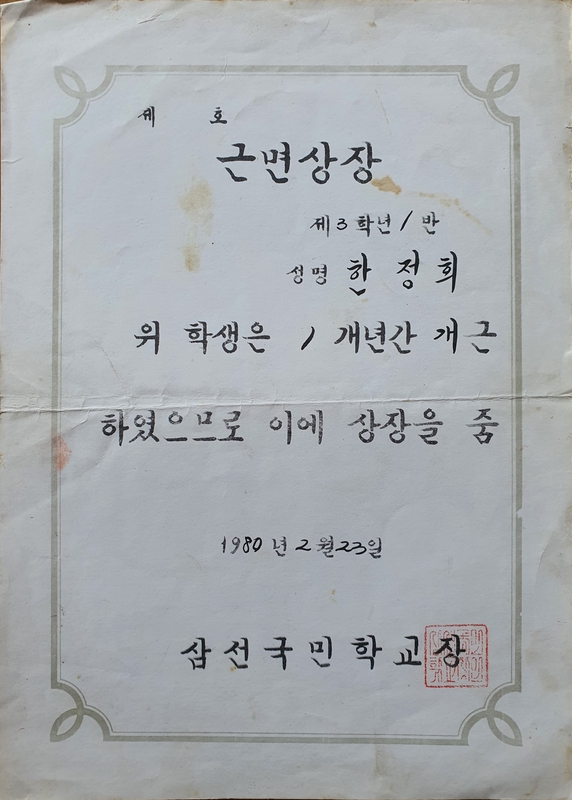 제 호
근면상장
제3학년 1반
성명 한정희
위 학생은 1 개년간 개근
하였으므로 이에 상장을 줌
1980년 2월 23일
삼선국민학교장